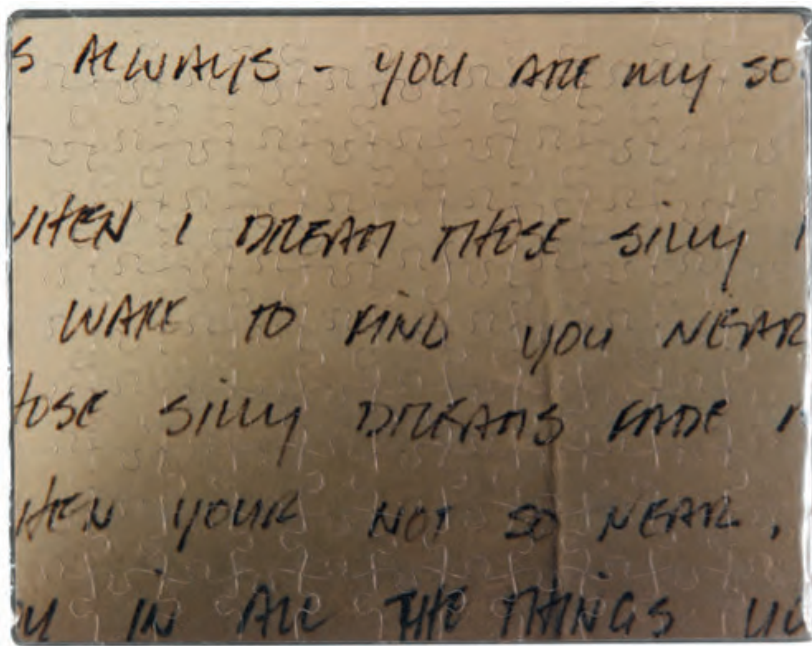 S ALWAYS - YOU ARE MY SO
WHEN I DREAM THOSE SILLY
WAKE TO FIND YOU NEAR
HOSE SILLY DREAMS FADE
HEN YOUR NOT SO NEAR,
U IN ALL THE THINGS